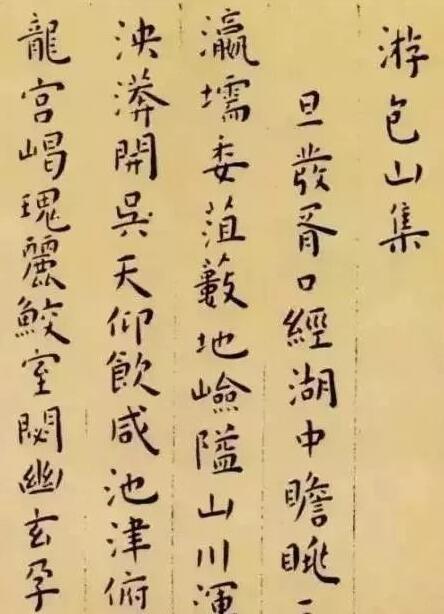 游包山集
旦發胥口經湖中瞻眺
瀛壖委菹藪地嶮隘山川
泱漭開吳天仰飲咸池津俯
龍宮嵑瑰麗鮫室閟幽玄孕